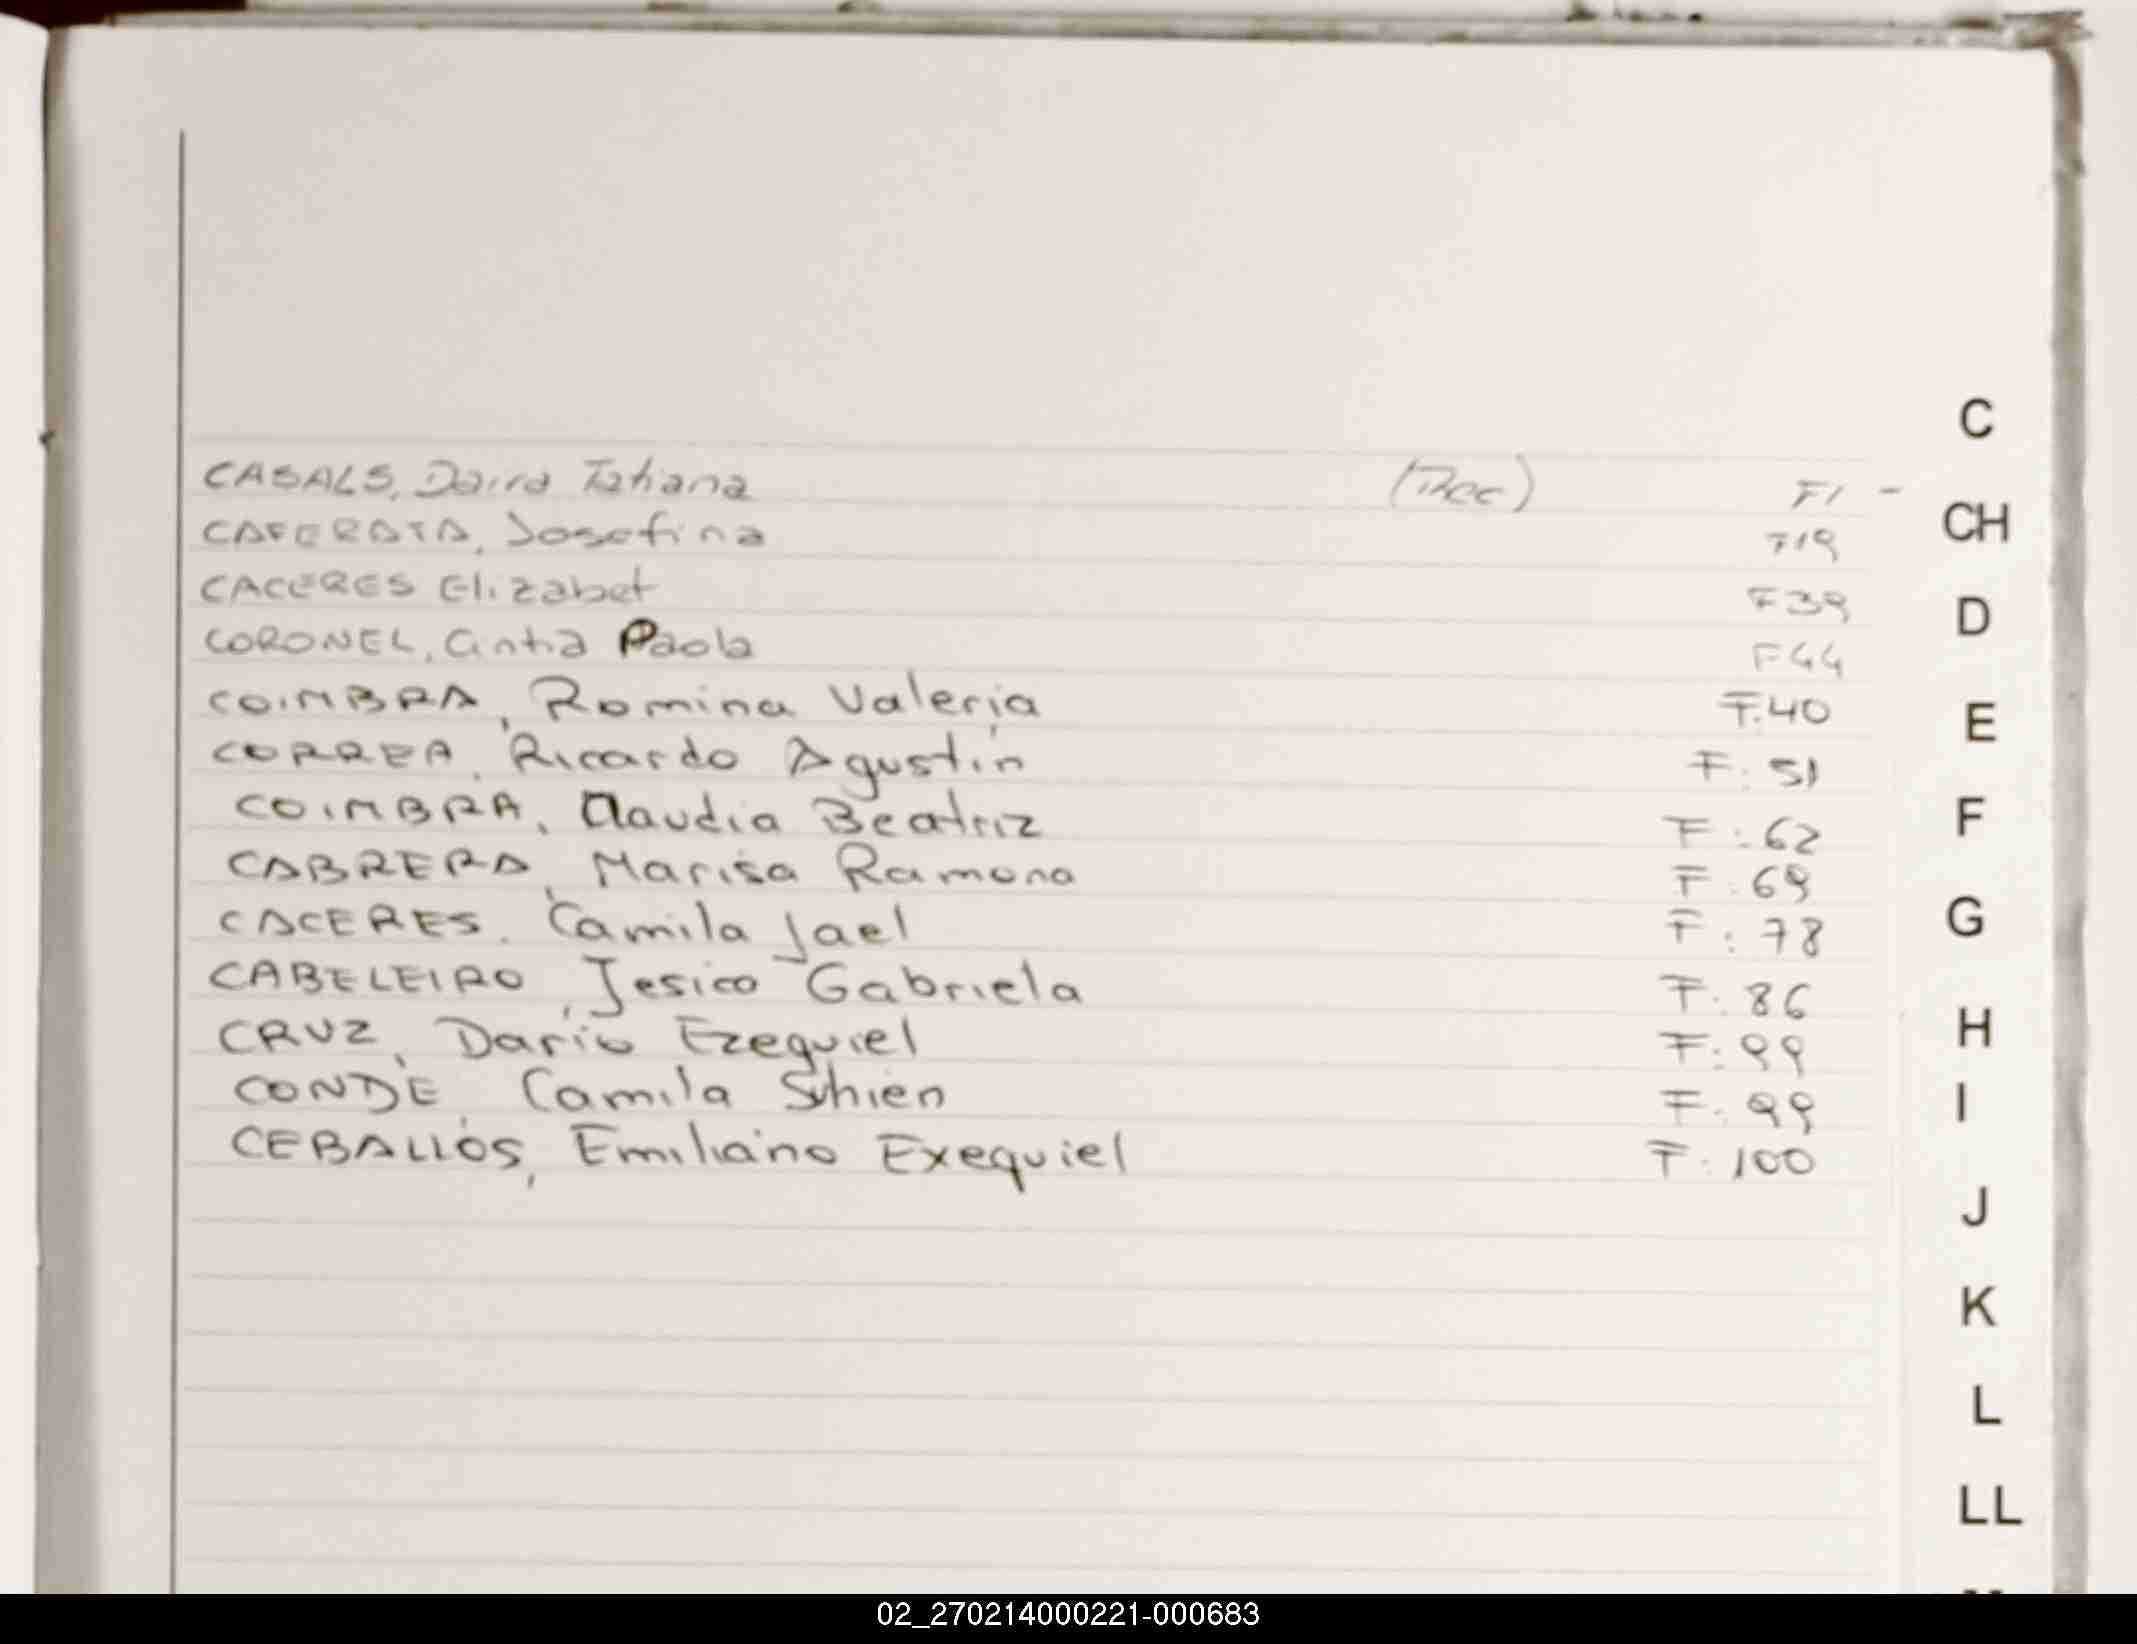 CASALS, Daira Tatiana (Rec) F1 -
CAFERATA, Josefina F19
CACERES Elizabet F39
CORONEL, Cintia Paola F44
COIMBRA, Romina Valeria F.40
CORREA, Ricardo Agustín F: 51
COIMBRA, Claudia Beatriz F: 62
CABRERA, Marisa Ramona F: 69
CACERES. Camila Jael F: 78
CABELEIRO, Jesica Gabriela F: 86
CRUZ, Dario Ezequiel F: 99
CONDE, Camila F: 99
CEBALLOS, Emiliano Exequiel F: 100
C
CH
D
E
F
G
H
I
J
K
L
LL
02_270214000221-000683